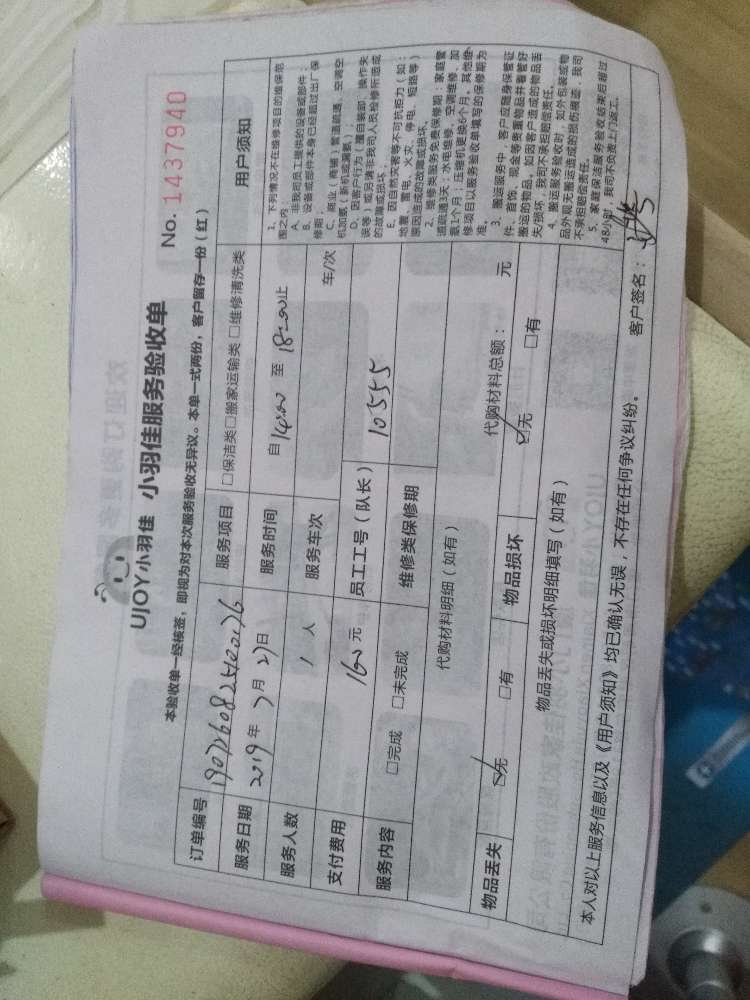 UJOY小羽佳 小羽佳服务验收单
No. 1437940
本验收单一经核签，即视为对本次服务验收无异议。本单一式两份，客户留存一份（红）
订单编号 服务项目 □保洁类□搬家运输类 □维修清洗类 用户须知
服务日期 2019年7月27日 服务时间 自14:00 至 18:00止
服务人数 1 人 服务车次 车/次
支付费用 160元 员工工号（队长） 10555
服务内容 □完成 □未完成 维修类保修期
代购材料明细（如有） 代购材料总额： 元
物品丢失 ☑无 □有 物品损坏 ☑无 □有
物品丢失或损坏明细填写（如有）
1、下列情况不在维修项目的维保范
围之内：
A、非我司员工提供的设备或部件；
B、设备或部件本身已经超过出厂保
修期；
C、商业（商铺）管道疏通、空调空
机加氨（新机或漏氨）；
D、因客户行为（擅自装卸、操作失
误等）或另请非我司人员检修所造成
的故障或损坏；
E、因自然灾害等不可抗拒力（如：
地震、雷电、火灾、停电、短路等）
原因造成的故障或损坏。
2、维修类服务的免费保修期：家庭管
道疏通3天；水电维修、空调维修、加
氨1个月；压缩机更换6个月。其他维
修项目以服务验收单填写的保修期为
准。
3、搬运服务中，客户应随身保管证
件、首饰、现金等贵重物品并看管好
搬运的物品。如因客户造成的物品丢
失/损坏，我司不承担赔偿责任。
4、搬运服务验收时，如外包装或物
品外观无搬运造成的损伤痕迹，我司
不承担赔偿责任。
5、家庭保洁服务验收结束后超过
48小时，我司不负责上门返工。
本人对以上服务信息以及《用户须知》均已确认无误，不存在任何争议纠纷。 客户签名：